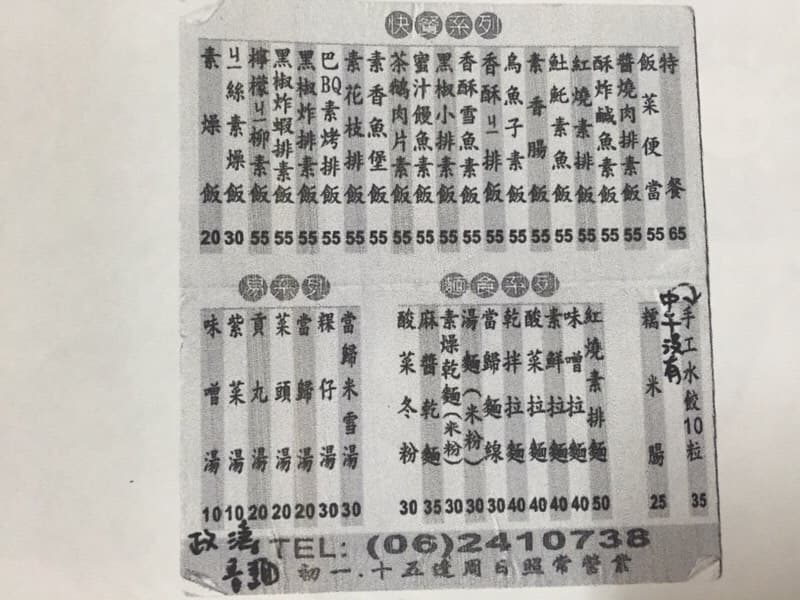 快餐系列
特餐 65
飯菜便當 55
醬燒肉排素飯 55
酥炸鹹魚素飯 55
紅燒素排飯 55
魠魠素魚飯 55
素香腸飯 55
烏魚子素飯 55
香酥ㄐㄧ排飯 55
香酥雪魚素飯 55
黑椒小排素飯 55
蜜汁饅魚素飯 55
茶鵝肉片素飯 55
素香魚堡飯 55
素花枝排飯 55
巴BQ素烤排飯 55
黑椒炸排素飯 55
黑椒炸蝦排素飯 55
檸檬ㄐㄧ柳素飯 55
ㄐㄧ絲素燥飯 30
素燥飯 20
麵食系列
手工水餃10粒 35
中午沒有
糯米腸 25
紅燒素排麵 50
味噌拉麵 40
素鮮拉麵 40
酸菜拉麵 40
乾拌拉麵 40
當歸麵線 30
湯麵(米粉) 30
素燥乾麵(米粉) 30
麻醬乾麵 35
酸菜冬粉 30
湯系列
當歸米雪湯 30
粿仔湯 30
當歸湯 20
菜頭湯 20
貢丸湯 20
紫菜湯 10
味噌湯 10
TEL: (06)2410738
初一.十五逢周日照常營業